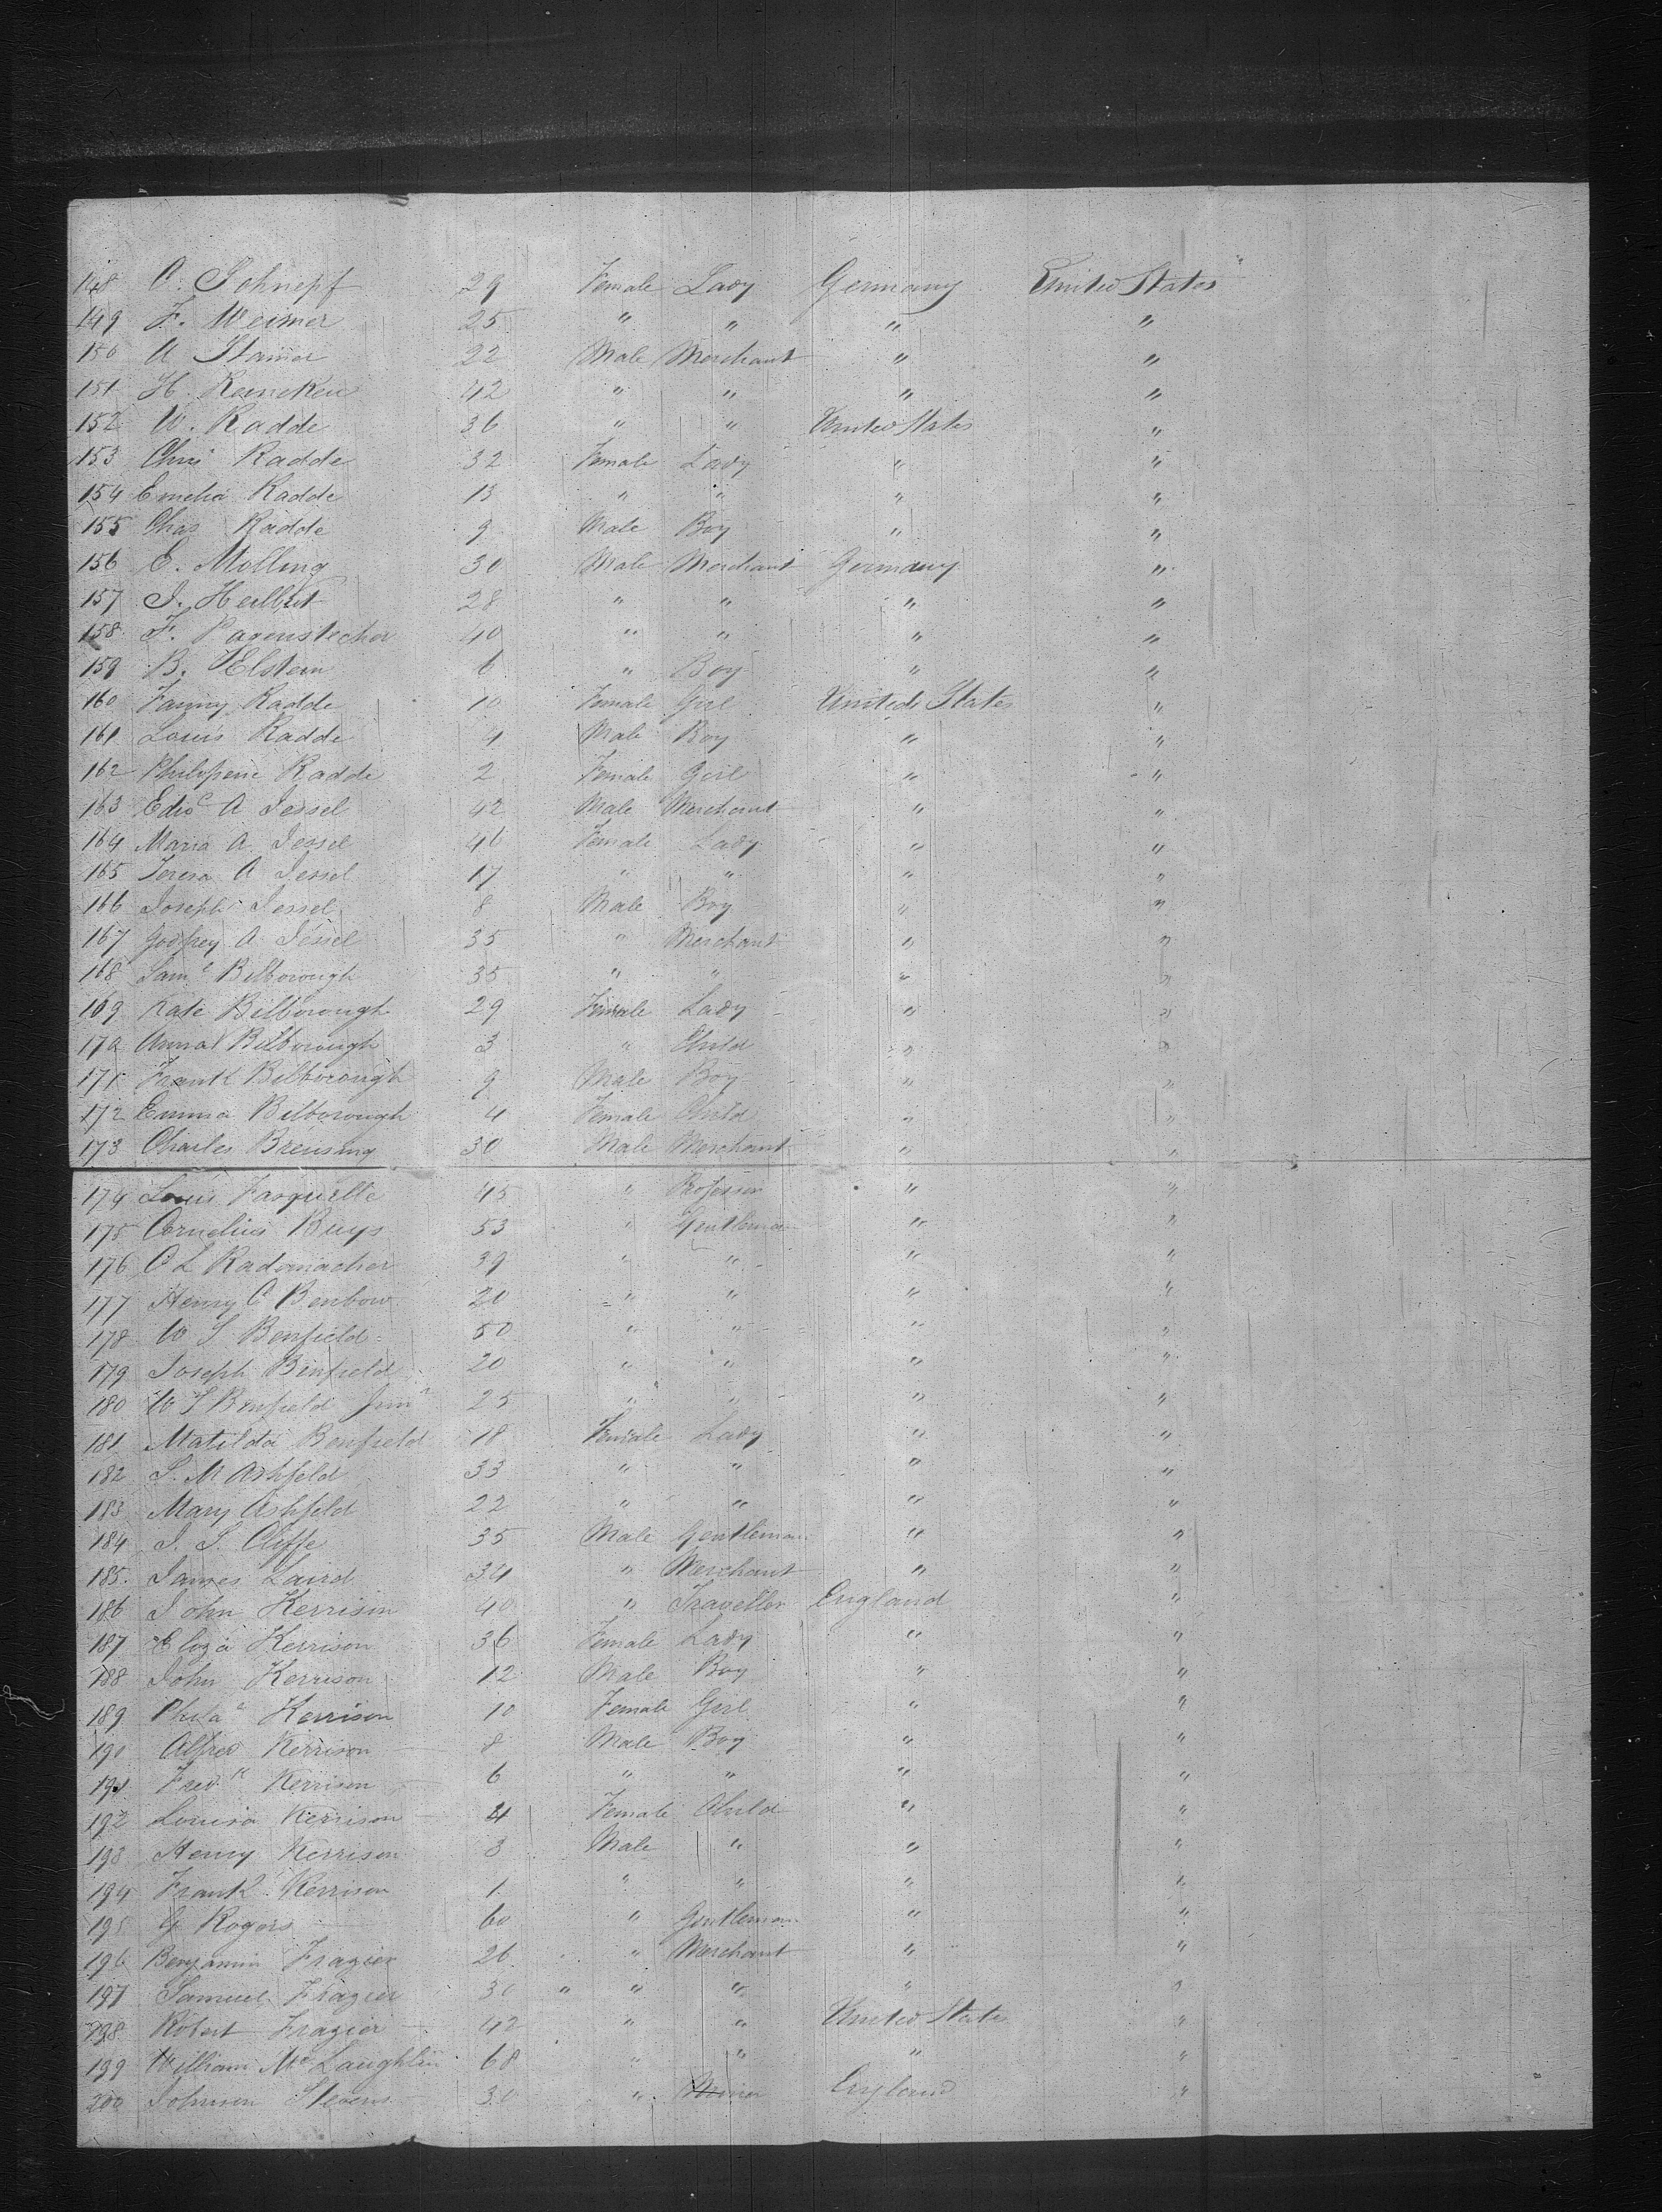 148 C. Schnepf 29 Female Lady Germany United States
149 F. Weimer 25 " " " "
150 A Stamer 22 Male Merchant " "
151 H. Reineken 42 " " " "
152 W. Radde 36 " " United States "
153 Chrs Radde 32 Female Lady " "
154 Emelia Radde 13 " " " "
155 Chas Radde 9 Male Boy " "
156 E. Molling 30 Male Merchant Germany "
157 J. Heilbut 28 " " " "
158 F. Pagenstecher 40 " " " "
159 B. Elstein 6 " Boy " "
160 Fanny Radde 10 Female Girl United States "
161 Louis Radde 4 Male Boy " "
162 Philopene Radde 2 Female Girl " "
163 A Jessel 42 Male Merchant " "
164 Maria A. Jessel 46 Female Lady " "
165 Teresa A Jessel 17 " " " "
166 Joseph Jessel 8 Male Boy " "
167 Godfrey A Jessel 35 " Merchant " "
168 Saml Bilborough 35 " " " "
169 Kate Bilborough 29 Female Lady " "
170 Anna Bilborough 3 " Child " "
171 Frank Bilborough 9 Male Boy " "
172 Emma Bilborough 4 Female Child " "
173 Charles Breusing 30 Male Merchant " "
174 Louis Fasquelle 45 " Professor " "
175 Cornelius Ruys 53 " Gentleman " "
176 C L Rademacher 39 " " " "
177 Henry C Benbow 20 " " " "
178 W S Benfield 50 " " " "
179 Joseph Benfield 20 " " " "
180 W S Benfield Junr 25 " " " "
181 Matilda Benfield 18 Female Lady " "
182 S. M Ashfeld 33 " " " "
183 Mary Ashfeld 22 " " " "
184 J. S. Cliffe 35 Male Gentleman " "
185. James Laird 34 " Merchant " "
186 John Kerrison 40 " Traveller England "
187 Eloza Kerrison 36 Female Lady " "
188 John Kerrison 12 Male Boy " "
189 Phila Kerrison 10 Female Girl " "
190 Alfred Kerrison 8 Male Boy " "
191 Fredk Kerrison 6 " " " "
192 Louisa Kerrison 4 Female Child " "
193 Henry Kerrison 3 Male " " "
194 Frank Kerrison 1 " " " "
195 G Rogers 60 " Gentleman " "
196 Benjamin Frazier 26 " Merchant " "
197 Samuel Frazier 30 " " " " "
198 Robert Frazier 42 " " United States "
199 William McLaughlin 68 " " " "
200 Johnson Stevens 30 " Miner England "